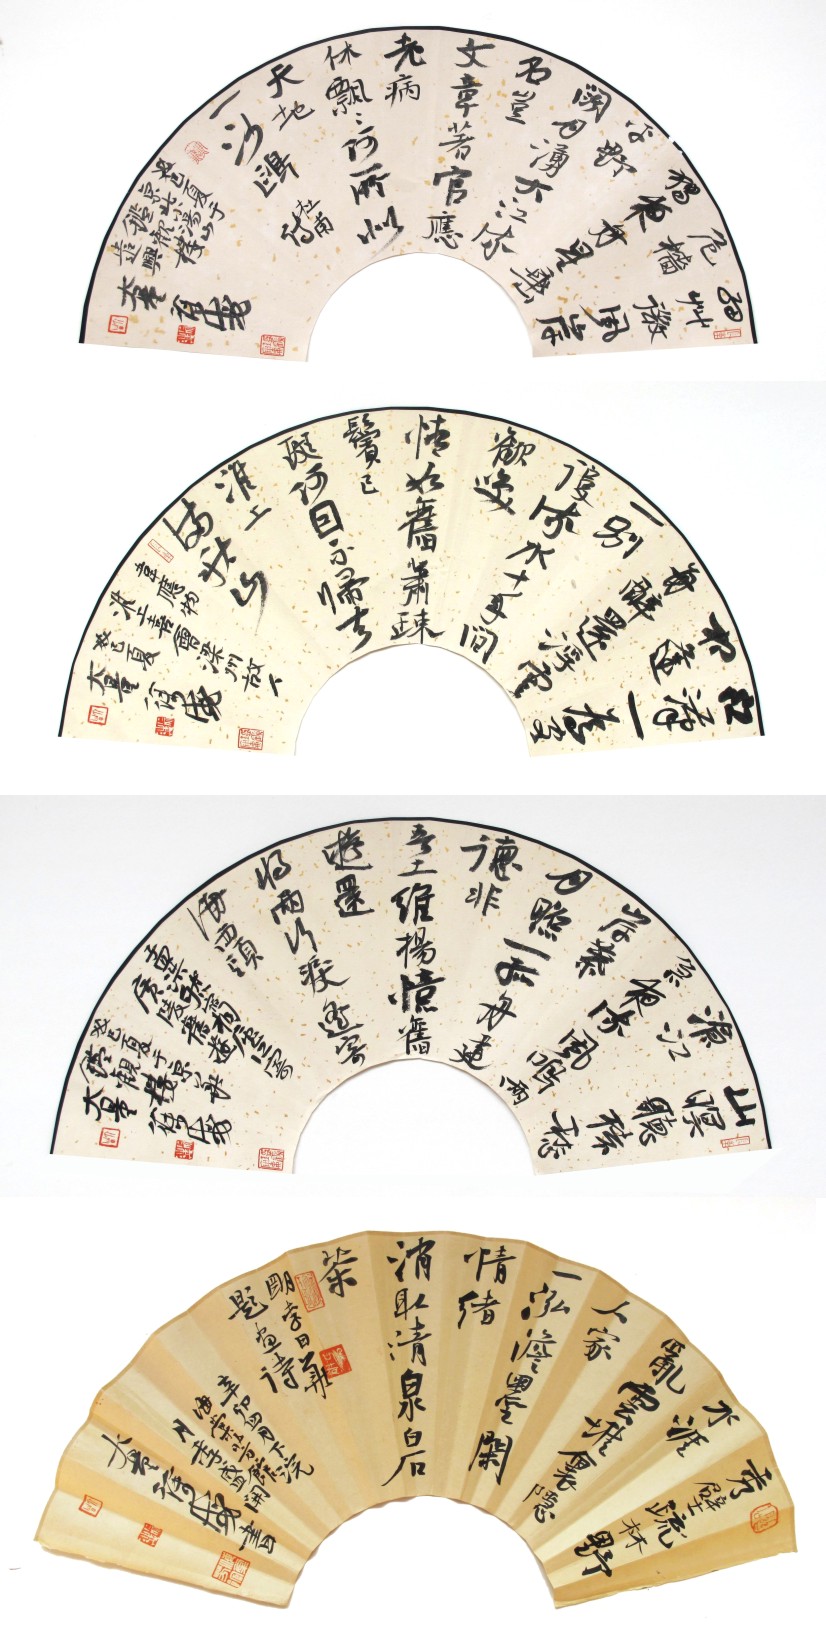 細艸微風岸
危檣
獨夜舟星垂
平野
闊月湧大江流
名豈
文章著官應
老病
休飄〻何所似
天地
一沙鷗
杜甫詩
癸巳夏于
大墨
江漢一為客
相逢
每醉還浮雲
一別
後流水十年間
歡笑
情如舊蕭疎
鬢已
斑何因不歸去
淮上
有秋山
韋應物
淮上喜會梁州故人
癸巳夏
大墨
山暝聽猿愁
滄江
急夜流風鳴兩
岸葉
月照一孤舟建
德非
吾土維揚憶舊
遊還
將兩行淚遙寄
海西頭
孟浩然宿桐廬江寄
廣陵舊遊
癸巳夏于京
大墨
秀壁疏林野
水涯
亂雲堆裏隱
人家
一泓澹墨閑
情緒
消取清泉白石
茶
明李日華
題畫詩
辛卯四月下浣
大墨